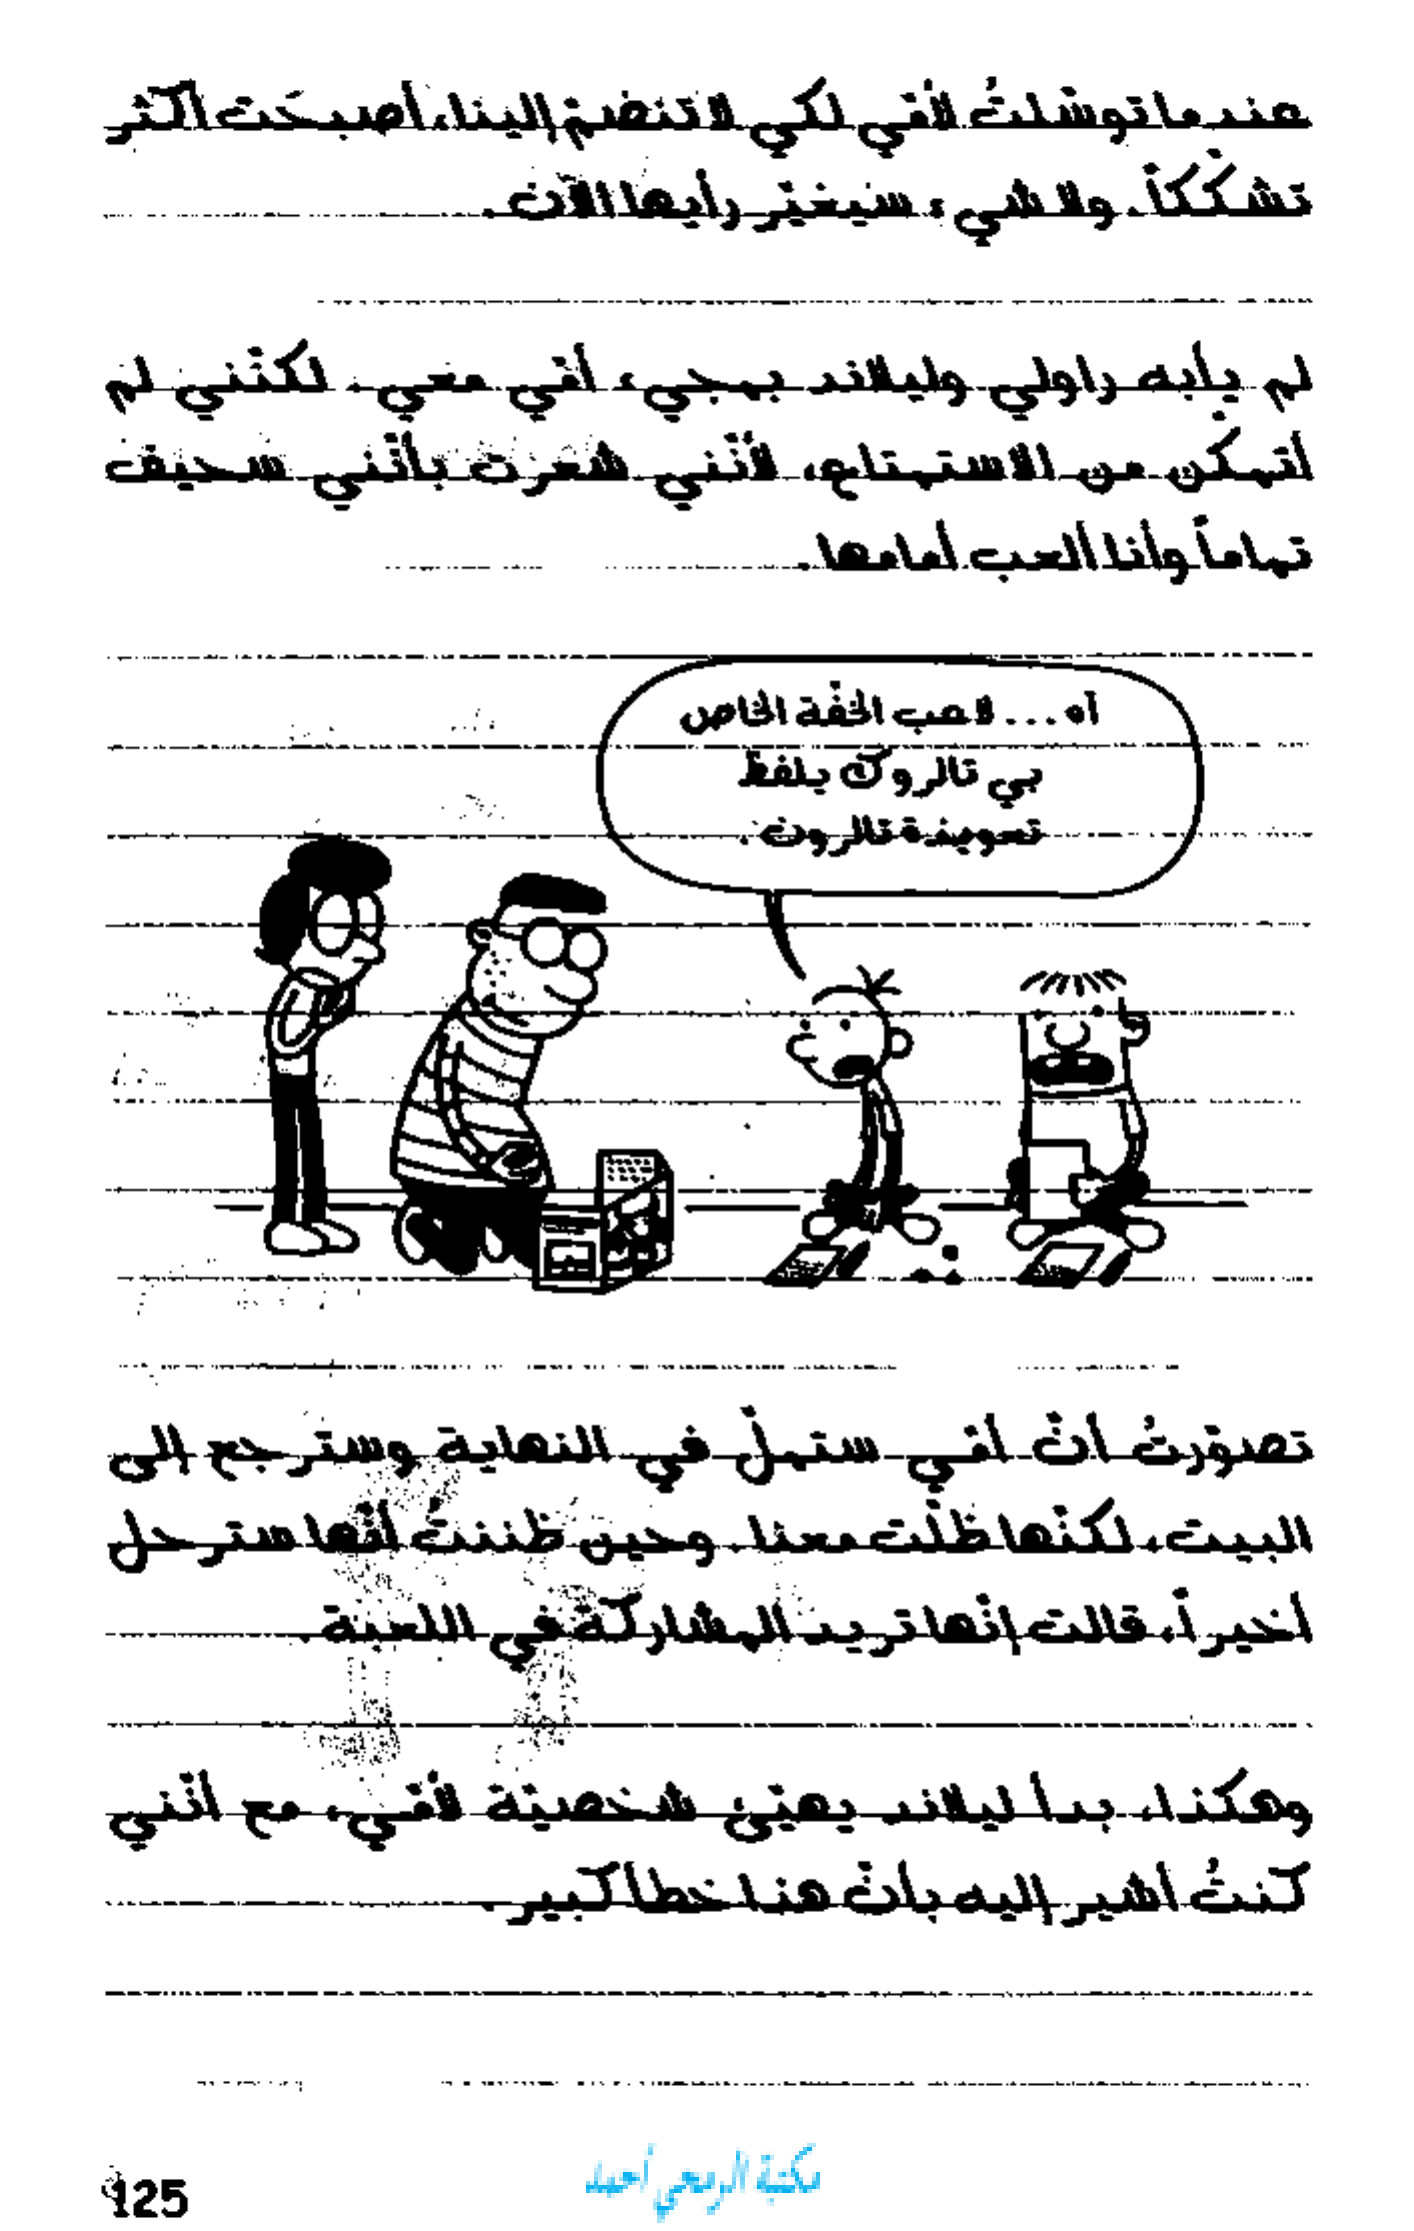 عندما توسّلتُ لأمّي لكي لا تنضمّ إلينا، أصبحَت أكثر
تشكّكاً. ولا شيء سيغيّر رأيها الآن.
لم يأبه راولي وليلاند بمجيء أمّي معي. لكنّني لم
أتمكّن من الاستمتاع، لأنّني شعرت بأنّني سخيف
تماماً وأنا ألعب أمامها.
آه... لاعب الخفّة الخاص
بي تالروك يلفظ
تعويذة تالرون.
تصوّرتُ أنّ أمّي ستملّ في النهاية وسترجع إلى
البيت، لكنّها ظلّت معنا. وحين ظننتُ أنّها سترحل
أخيراً، قالت إنّها تريد المشاركة في اللعبة.
وهكذا، بدأ ليلاند يهيّئ شخصيّة لأمّي، مع أنّني
كنتُ أشير إليه بأنّ هذا خطأ كبير.
مكتبة الرمحي أحمد
125